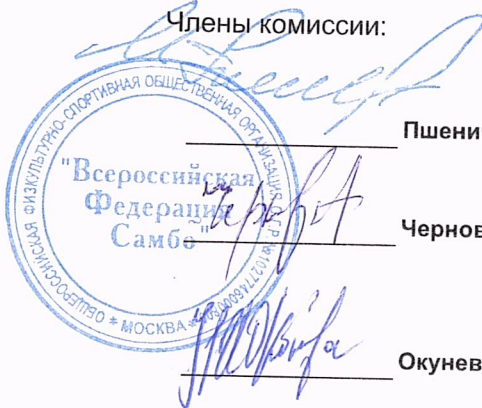 Члены комиссии:
Пшени
Чернов
Окунев
ОБЩЕРОССИЙСКАЯ ФИЗКУЛЬТУРНО-СПОРТИВНАЯ ОБЩЕСТВЕННАЯ ОРГАНИЗАЦИЯ
* МОСКВА *
"Всероссийская
Федерация
Самбо"